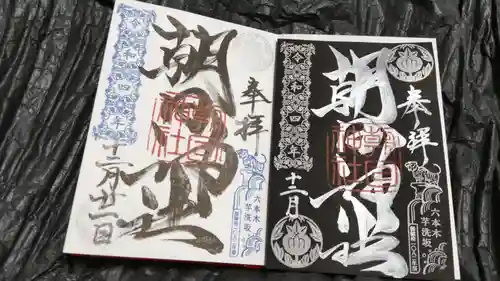 奉拝
朝日神社
朝日神社
令和四年
十二月廿一日
六本木
芋洗坂。
奉拝
朝日神社
朝日神社
令和四年
十二月
六本木
芋洗坂。